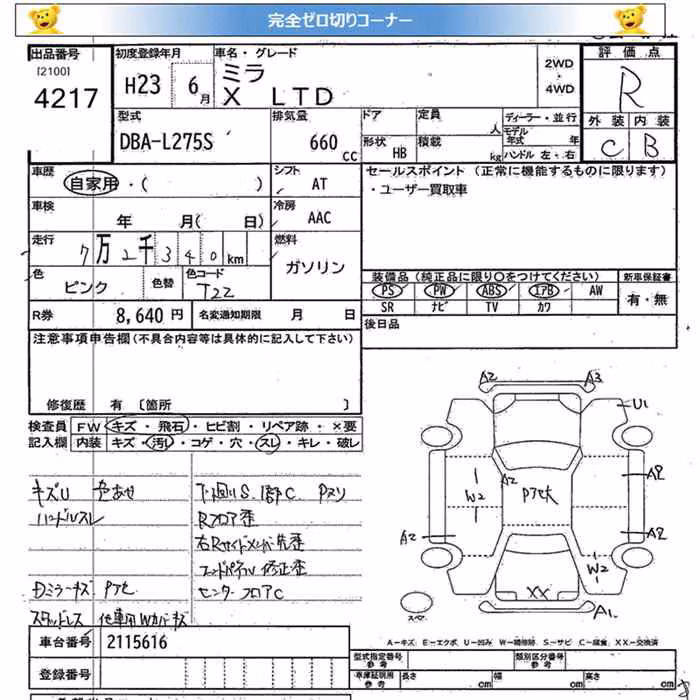 完全ゼロ切りコーナー
出品番号 初度登録年月 車名・グレード 評価点
[2100] 4217 H23 6月 ミラ X LTD 2WD・4WD R
外装 内装
C B
型式 排気量 ドア 定員 人 ディーラー・並行
DBA-L275S 660 CC 形状 HB 積載 kg モデル年式 年 ハンドル 左・右
車歴 自家用・( ) シフト AT セールスポイント (正常に機能するものに限ります)
・ユーザー買取車
車検 年 月( 日) 冷房 AAC
走行 7万2千340km 燃料 ガソリン
色 ピンク 色替 色コード T22 装備品(純正品に限り〇をつけてください) 新車保証書
PS PW ABS エアB AW 有・無
SR ナビ TV カワ
R券 8,640円 名変通知期限 月 日 後日品
注意事項申告欄(不具合内容等は具体的に記入して下さい)
修復歴 有 〔箇所 〕
検査員 FW キズ・飛石・ヒビ割・リペア跡・×要
記入欄 内装 キズ・汚れ・コゲ・穴・スレ・キレ・破レ
キズU 色あせ
ハンドルスレ
Dミラーキズ Pアセ
スタッドレス 他車用Wカバーキズ
下回りS. 1部C Pヌリ
Rフロア歪
右Rサイドメンバー先歪
フードパネル修正歪
センターフロアC
A2 A3
U1
A2 W2 Pアセ大 A2
A2 A2
W2
XX
スペア A1
A-キズ E-エクボ U-凹み W-補修跡 S-サビ C-腐食 XX-交換済
車台番号 2115616 型式指定番号 参考 類別区分番号 参考
登録番号 車庫証明用 参考 長さ cm 幅 cm 高さ cm